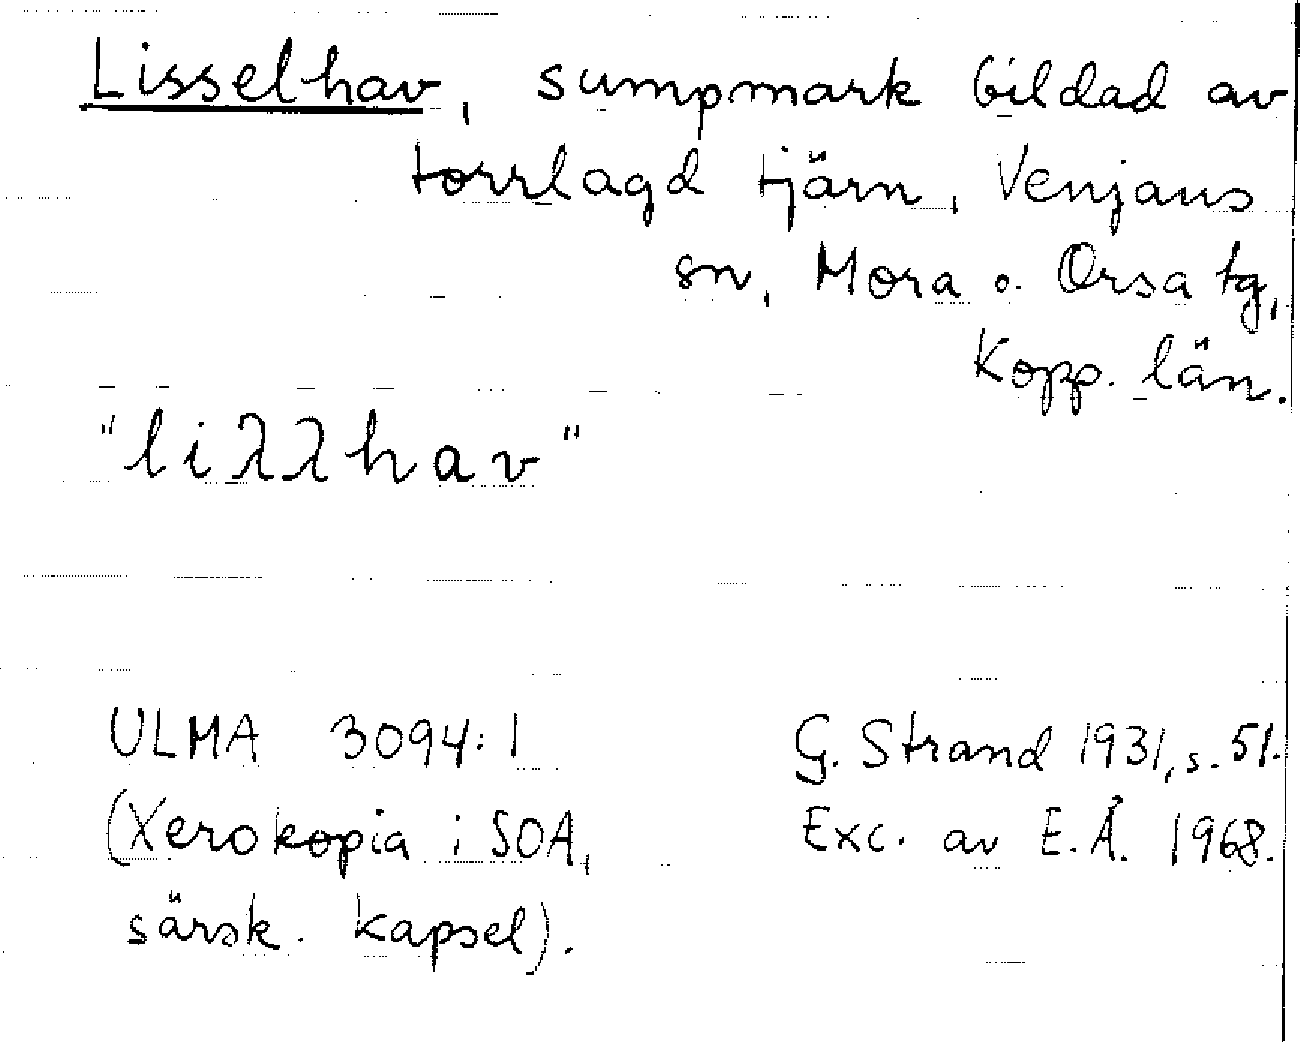 Lisselhav, sumpmark bildad av
torrlagd tjärn, Venjans
sn, Mora o. Orsa tg,
Kopp. län.
"liλλhav"
ULMA 3094:1
(Xerokopia i SOA,
särsk. kapsel).
G. Strand 1931, s. 51.
Exc. av E. Å. 1968.